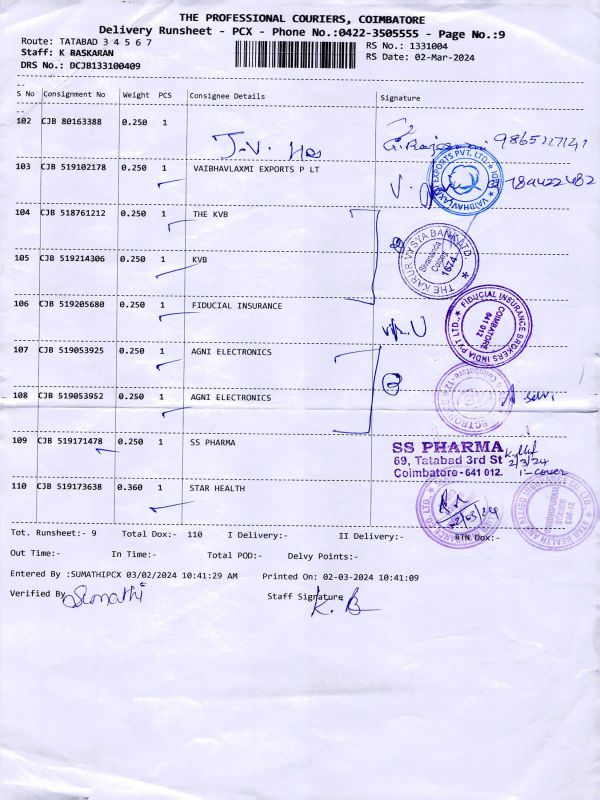 THE PROFESSIONAL COURIERS, COIMBATORE
Delivery Runsheet - PCX - Phone No.:0422-3505555 - Page No.:9
Route: TATABAD 3 4 5 6 7
RS No.: 1331004
Staff: K BASKARAN
RS Date: 02-Mar-2024
DRS No.: DCJB133100409
S No Consignment No Weight PCS Consignee Details Signature
102 CJB 80163388 0.250 1
103 CJB 519102178 0.250 1 VAIBHAVLAXMI EXPORTS P LT
104 CJB 518761212 0.250 1 THE KVB
105 CJB 519214306 0.250 1 KVB
THE KARUR VYSYA BANK LTD.
Sivananda
Colony
1674
106 CJB 519205680 0.250 1 FIDUCIAL INSURANCE
FIDUCIAL INSURANCE BROKERS INDIA PVT LTD.,
COIMBATORE
641 012
107 CJB 519053925 0.250 1 AGNI ELECTRONICS
108 CJB 519053952 0.250 1 AGNI ELECTRONICS
109 CJB 519171478 0.250 1 SS PHARMA
SS PHARMA
69, Tatabad 3rd St
Coimbatore - 641 012.
2/3/24
1-cover
110 CJB 519173638 0.360 1 STAR HEALTH
02/03/24
Tot. Runsheet:- 9 Total Dox:- 110 I Delivery:- II Delivery:- RTN Dox:-
Out Time:- In Time:- Total POD:- Delvy Points:-
Entered By :SUMATHIPCX 03/02/2024 10:41:29 AM Printed On: 02-03-2024 10:41:09
Verified By Sumathi Staff Signature K. B